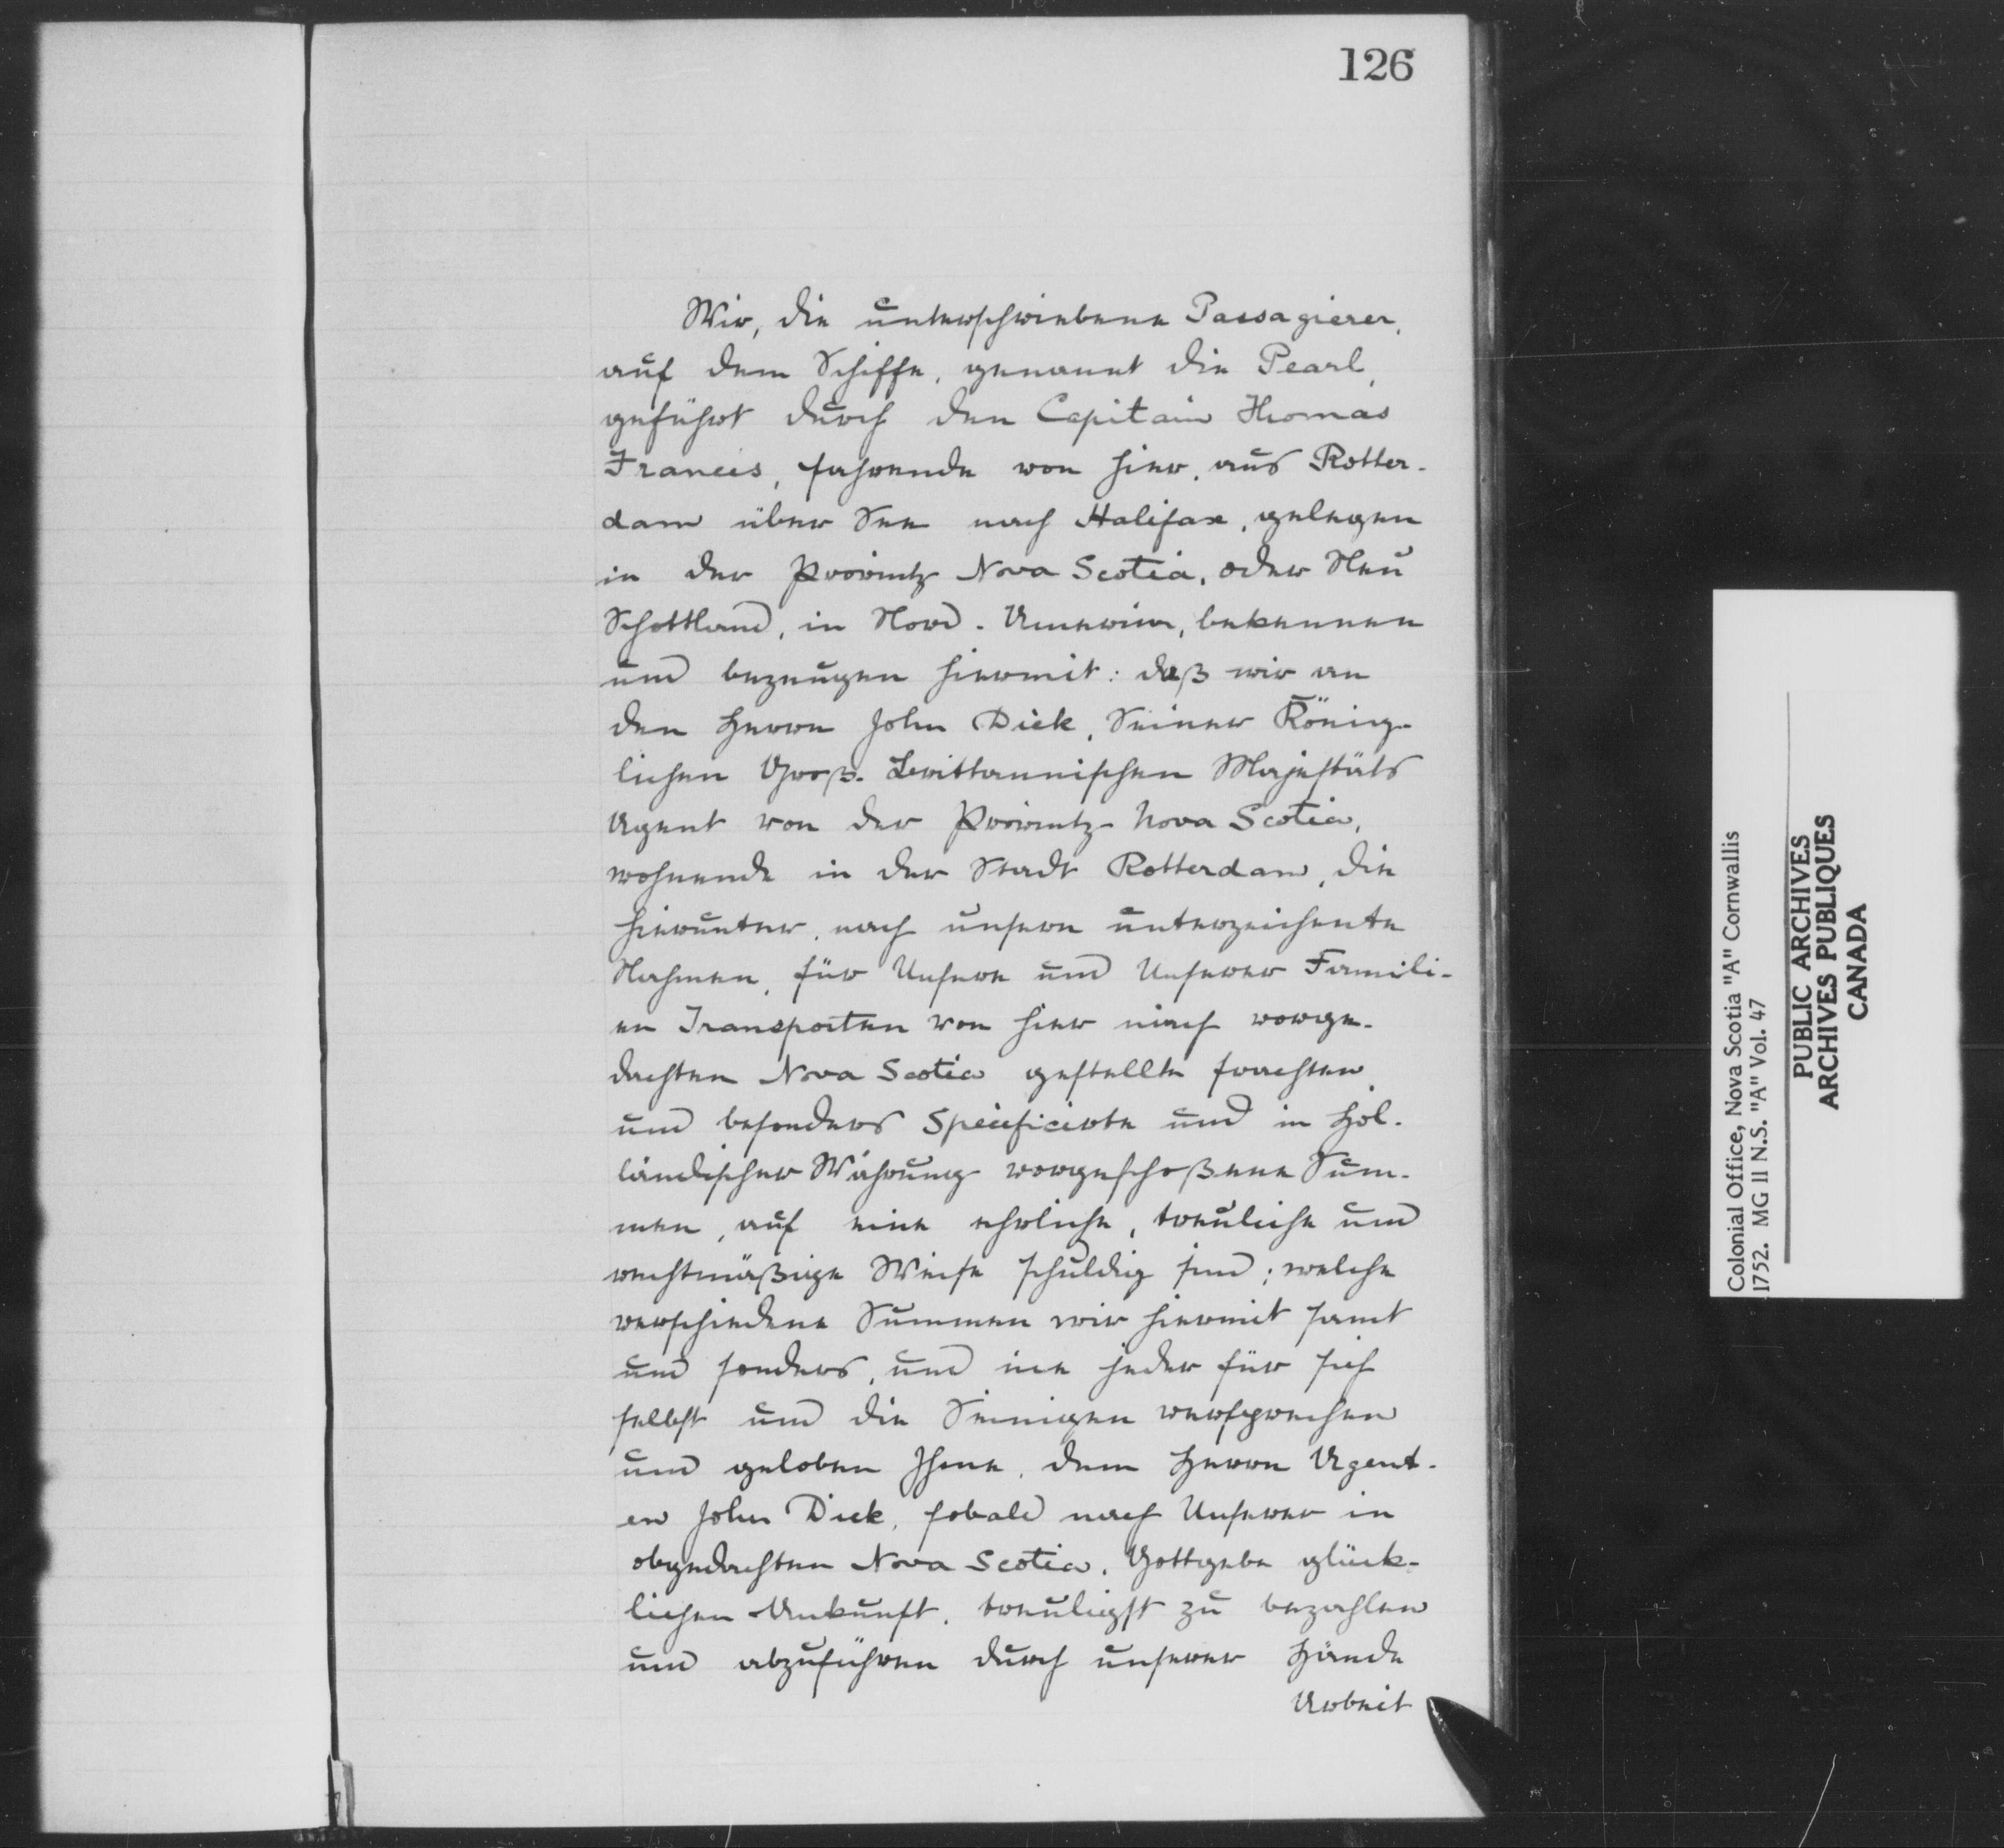 126
Wir, die unterschriebene Passagierer,
auf dem Schiffe, genannt die Pearl,
geführt durch den Capitain Thomas
Francis, fahrende von hier, aus Rotter-
dam über See nach Halifax, gelegen
in der Provintz Nova Scotia, oder Neu
Schottland, in Nord-America, bekennen
und bezeugen hiermit: daß wir an
den Herrn John Dick, Seiner König-
lichen Groß-Brittannischen Majestäts
Agent von der Provintz Nova Scotia,
wohnende in der Stadt Rotterdam, die
hierunter, nach unsern unterzeichente
Nahmen, für Unsere und Unserer Famili-
en Transporten von hier nach vorge-
dachten Nova Scotia gestellte frachten
und besonders Specificirte und in Hol-
ländischer Währung vorgeschoßene Sum-
men, auf eine ehrliche, treuliche und
rechtmäßige Weise schuldig sind; welche
verschiedene Summen wir hiermit samt
und sonders, und ein jeder für sich
selbst und die Seinigen versprechen
und geloben Ihme, dem Herrn Agent-
en John Dick, sobald nach Unserer in
obgedachten Nova Scotia, Gottgebe glück-
lichen Ankunft, treuligst zu bezahlen
und abzuführen durch unserer Hände
Arbeit
Colonial Office, Nova Scotia "A" Cornwallis
1752. MG 11 N.S. "A" Vol. 47
PUBLIC ARCHIVES
ARCHIVES PUBLIQUES
CANADA